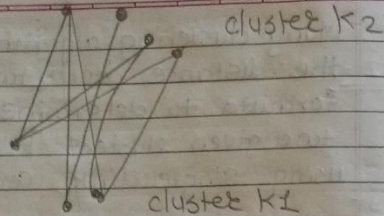 cluster K2
cluster K1